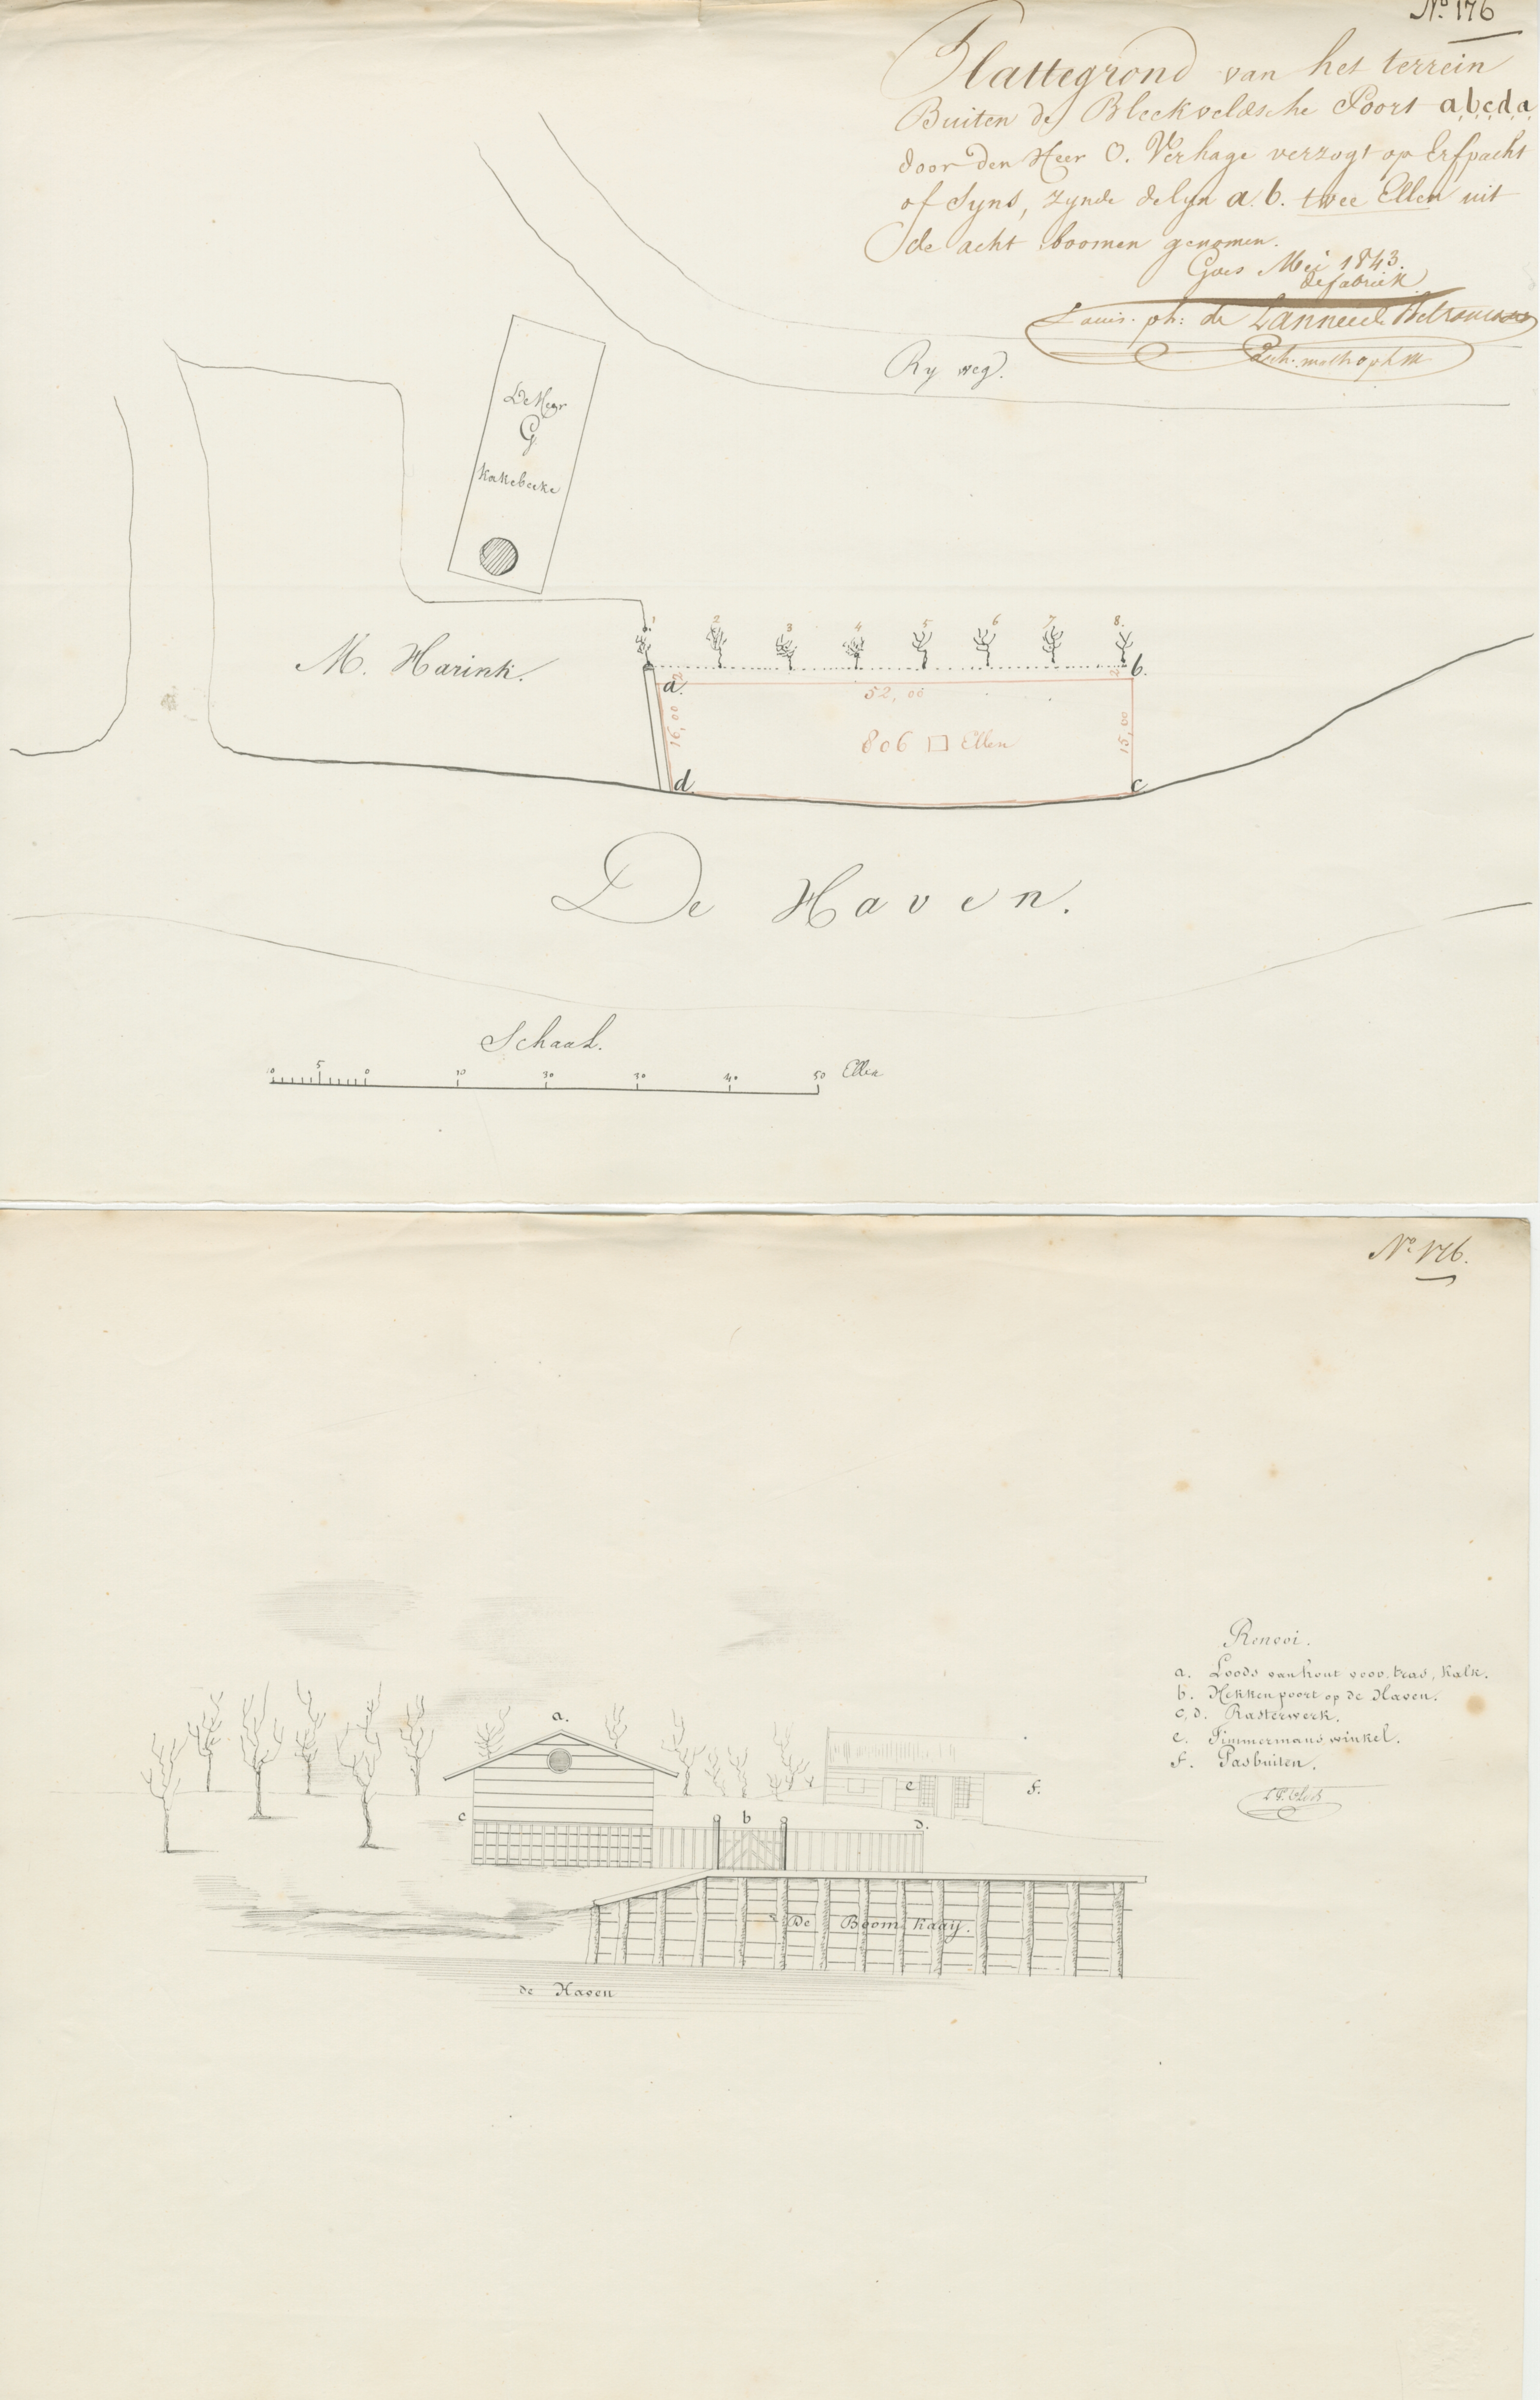 No. 176
Plattegrond van het terrein
Buiten de Bleekveldsche Poort a,b,c,d,a,
door den Heer O. Verhage verzogt op Erfpacht
of Cyns, zynde de lyn a. b. twee Ellen uit
de acht boomen genomen.
Goes Mei 1843.
de fabriek
Louis. ph: de Lannee de Betrancourt
Ry weg.
De Heer
G
Kakebeeke
1 2 3 4 5 6 7 8.
M. Harink.
a. b.
2 2
52, 00
16,00 15,00
806 □ Ellen
d. c
De Haven.
Schaal.
10 5 0 10 20 30 40 50 Ellen
No. 176.
Renvoi.
a. Loods van hout voor tras, Kalk.
b. Hekkenpoort op de Haven.
c, d. Rasterwerk.
e. Timmermans winkel.
f. Pasbuiten.
a.
e
f.
c b d.
De Boomkaay.
de Haven